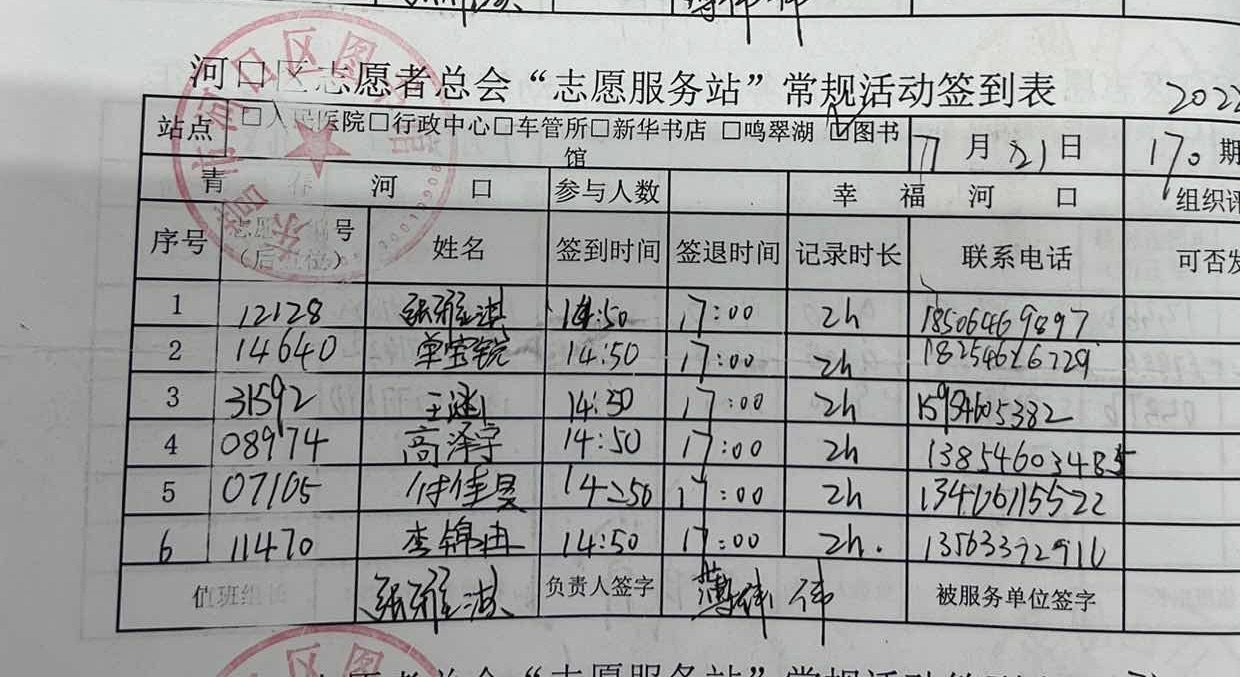 河口区志愿者总会“志愿服务站”常规活动签到表
2022
站点 □人民医院□行政中心□车管所□新华书店 □鸣翠湖 ☑图书馆 月 21日 170期
青春河口 参与人数 幸福河口 组织评
序号 志愿 编号(后五位) 姓名 签到时间 签退时间 记录时长 联系电话 可否发
1 12128 张雅淇 14:50 17:00 2h 18506469897
2 14640 单宝锐 14:50 17:00 2h 18254626229
3 31592 王涵 14:50 17:00 2h 15954605382
4 08974 高泽宇 14:50 17:00 2h 13854603485
5 07105 付佳昊 14:50 17:00 2h
6 11470 李锦冉 14:50 17:00 2h. 13563372910
值班组长 张雅淇 负责人签字 伟 被服务单位签字